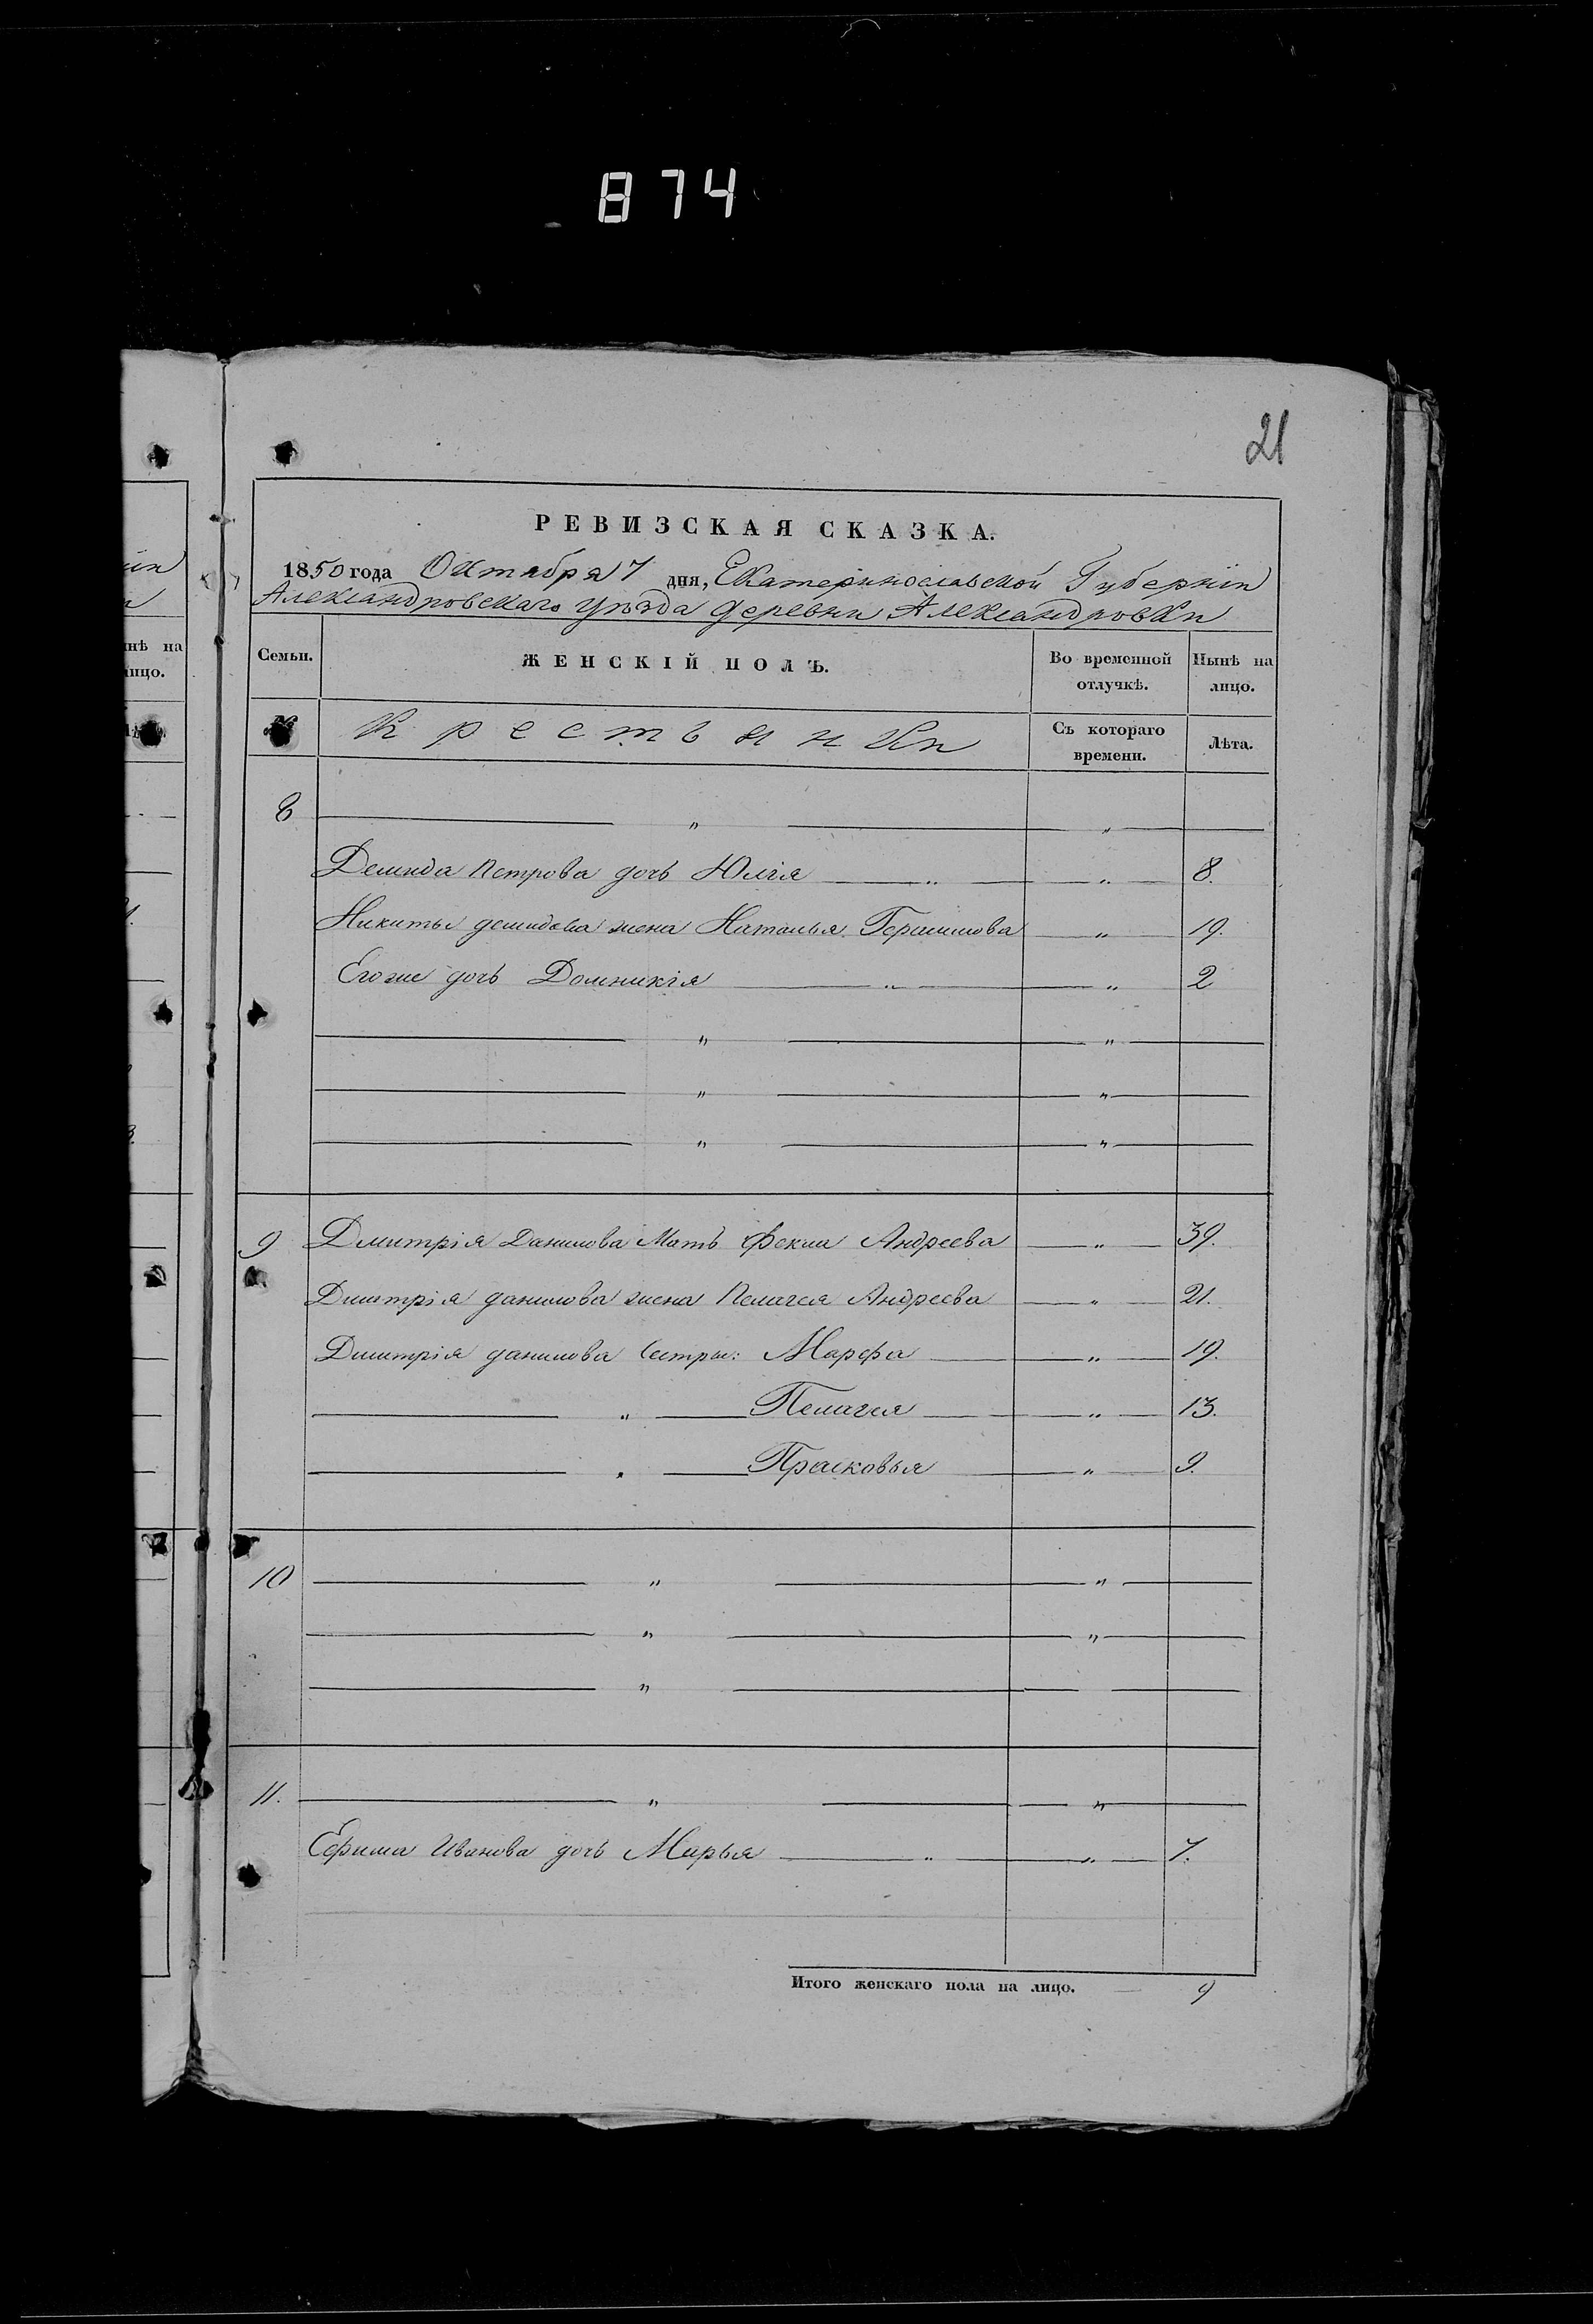 874
21
РЕВИЗСКАЯ СКАЗКА.
1850 года Октября 7 дня, Екатеринославской Губерніи
Александровскаго уѣзда деревни Александровки
Семьи. ЖЕНСКІЙ ПОЛЪ. Во временной отлучкѣ. Нынѣ на лицо.
№ Крестьянки Съ котораго времени. Лѣта.
8 „ „
Демида Петрова дочь Юлія „ „ 8.
Никиты демидова жена Наталья Герасимова „ 19.
Егоже дочь Домникія „ „ 2
„ „
„ „
„ „
9 Дмитрія Данилова Мать Фекла Андреева „ 39.
Дмитрія данилова жена Пелагея Андреева „ 21.
Дмитрія данилова Сестры: Марфа „ 19.
„ Пелагея „ 13.
„ Прасковья „ 9.
10 „ „
„ „
„
11. „ „
Ефима Иванова дочь Марья „ „ 7.
Итого женскаго пола на лицо. 9